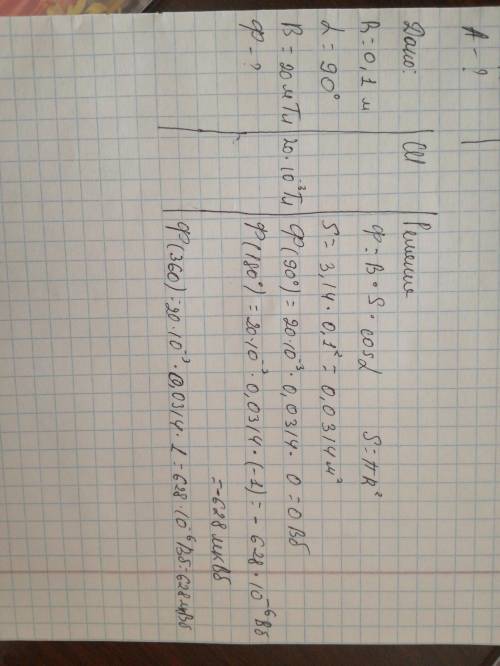 A - ?
Дано:
R = 0,1 м
α = 90°
B = 20 мТл
Ф - ?
СИ
20·10⁻³Тл
Решение
Ф = B·S·cosα    S = πR²
S = 3,14·0,1² = 0,0314 м²
Ф(90°) = 20·10⁻³·0,0314·0 = 0 Вб
Ф(180°) = 20·10⁻³·0,0314·(-1) = - 628·10⁻⁶Вб
= -628 мкВб
Ф(360) = 20·10⁻³·0,0314·1 = 628·10⁻⁶Вб = 628 мкВб